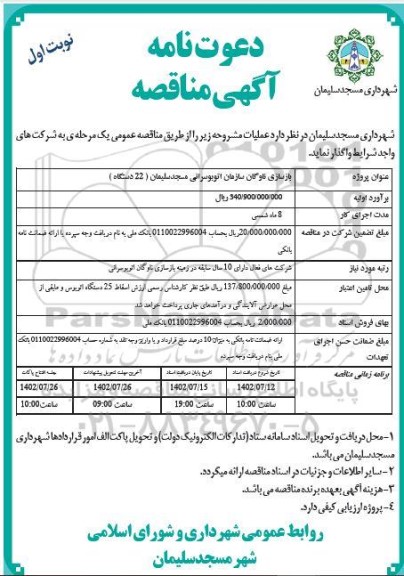 نوبت اول
دعوت نامه
آگهی مناقصه
شهرداری مسجدسلیمان
شهرداری مسجدسلیمان در نظر دارد عملیات مشروحه زیر را از طریق مناقصه عمومی یک مرحله ی به شرکت های
واجد شرایط واگذار نماید.
عنوان پروژه
بازسازی ناوگان سازمان اتوبوسرانی مسجدسلیمان ( 22 دستگاه )
برآورد اولیه
340/900/000/000 ریال
مدت اجرای کار
8 ماه شمسی
مبلغ تضمین شرکت در مناقصه
20/000/000/000ریال بحساب 0110022996004 بانک ملی به نام دریافت وجه سپرده یا ارائه ضمانت نامه
بانکی
رتبه مورد نیاز
شرکت های فعال دارای 10 سال سابقه در زمینه بازسازی ناوگان اتوبوسرانی
محل تامین اعتبار
مبلغ 137/800/000/000 ریال طبق نظر کارشناس رسمی ارزش اسقاط 25 دستگاه اتوبوس و مابقی از
محل عوارض آلایندگی و درآمدهای جاری پرداخت خواهد شد
بهای فروش اسناد
2/000/000 ریال بحساب 0110022996004 بانک ملی
مبلغ ضمانت حسن اجرای
تعهدات
ارائه ضمانت نامه بانکی به میزان 10 درصد مبلغ قرارداد و یا واریز وجه نقد به شماره حساب 0110022996004 بانک
ملی بنام دریافت وجه سپرده
برنامه زمانی مناقصه
تاریخ شروع دریافت اسناد
تاریخ پایان دریافت اسناد
آخرین مهلت تحویل پیشنهادات
جلسه افتتاح پاکات
1402/07/12
1402/07/15
1402/07/26
1402/07/26
ساعت 10:00
ساعت 19:00
ساعت 09:00
ساعت 10:00
۱-محل دریافت و تحویل اسناد سامانه ستاد (تدارکات الکترونیک دولت) و تحویل پاکت الف امور قراردادها شهرداری
مسجدسلیمان می باشد.
۲-سایر اطلاعات و جزئیات در اسناد مناقصه ارائه میگردد.
۳-هزینه آگهی بعهده برنده مناقصه می باشد.
٤-پروژه ارزیابی کیفی دارد.
روابط عمومی شهرداری و شورای اسلامی
شهر مسجدسلیمان
۰۲۱-۸۸۳۴۹۶۷۰-۵